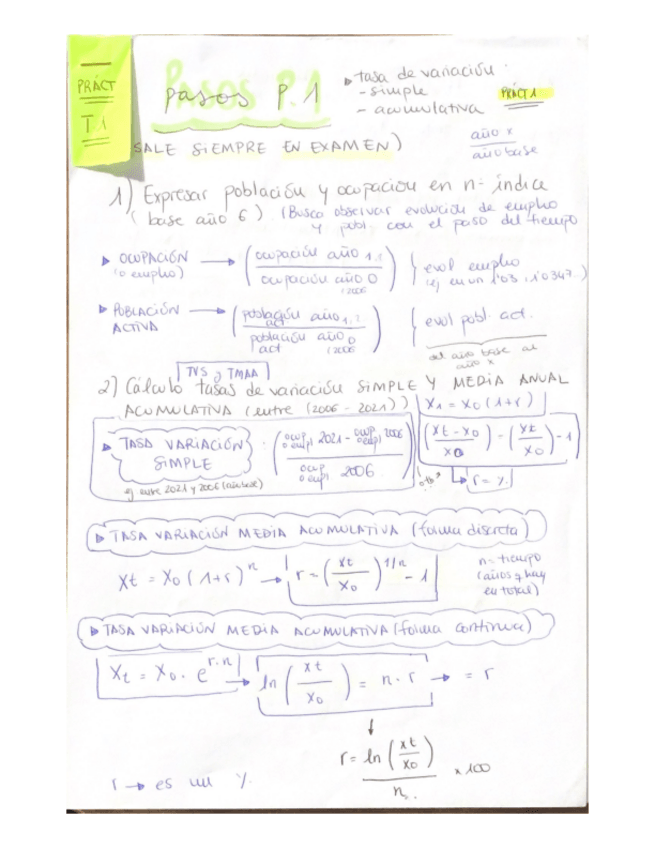 PRÁCT
T1
Pasos P.1
pasos P.1
▸ tasa de variación:
- simple
- acumulativa
PRÁCT 1
SALE SIEMPRE EN EXAMEN)
año x
año base
1) Expresar población y ocupación en nº índice
(base año 6) (Busca observar evolución de empleo
y pobl. con el paso del tiempo
▸ OCUPACIÓN
(o empleo)
→ (ocupación año 1,2
ocupación año 0
(2006
) { evol empleo
▸ POBLACIÓN
ACTIVA
→ (población año 1,2
act
población año 0
act (2006
) { evol pobl. act.
del año base al
año x
TVS y TMAA
2) Cálculo tasas de variación SIMPLE Y MEDIA ANUAL
ACUMULATIVA (entre (2006 - 2021))
X1 = X0 (1+r)
▸ TASA VARIACIÓN
SIMPLE
: (ocup o empl 2021 - ocup o empl 2006
ocup o empl 2006)
ej entre 2021 y 2006 (año base)
(xt - x0 / x0) - (xt / x0) - 1
↳ r = %
▸ TASA VARIACIÓN MEDIA ACUMULATIVA (forma discreta)
Xt = X0 (1+r)^n → r = (xt / x0)^1/n - 1
n = tiempo
(años q hay
en total)
▸ TASA VARIACIÓN MEDIA ACUMULATIVA (forma continua)
Xt = X0 · e^r·n → ln (xt / x0) = n · r → = r
↓
r = ln (xt / x0) / n × 100
r → es un %